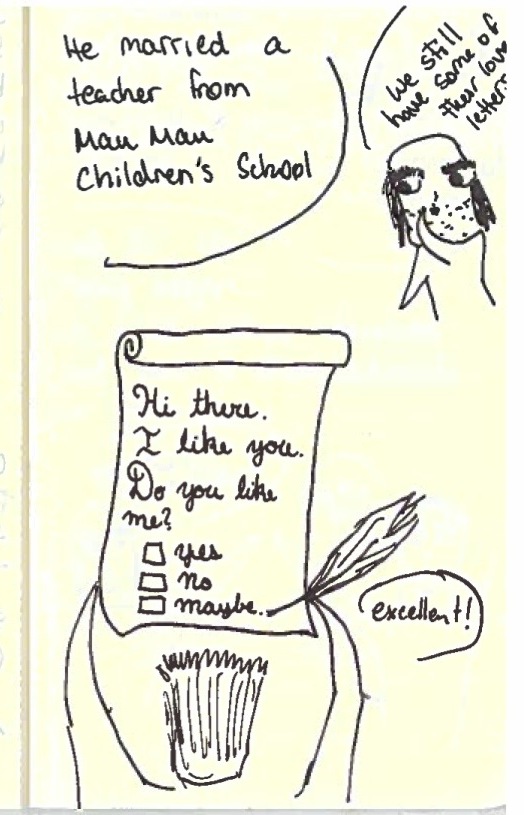 He married a
teacher from
Mau Mau
Children's School
We still
have some of
their love
letters
Hi there.
I like you.
Do you like
me?
yes
no
maybe.
excellent!